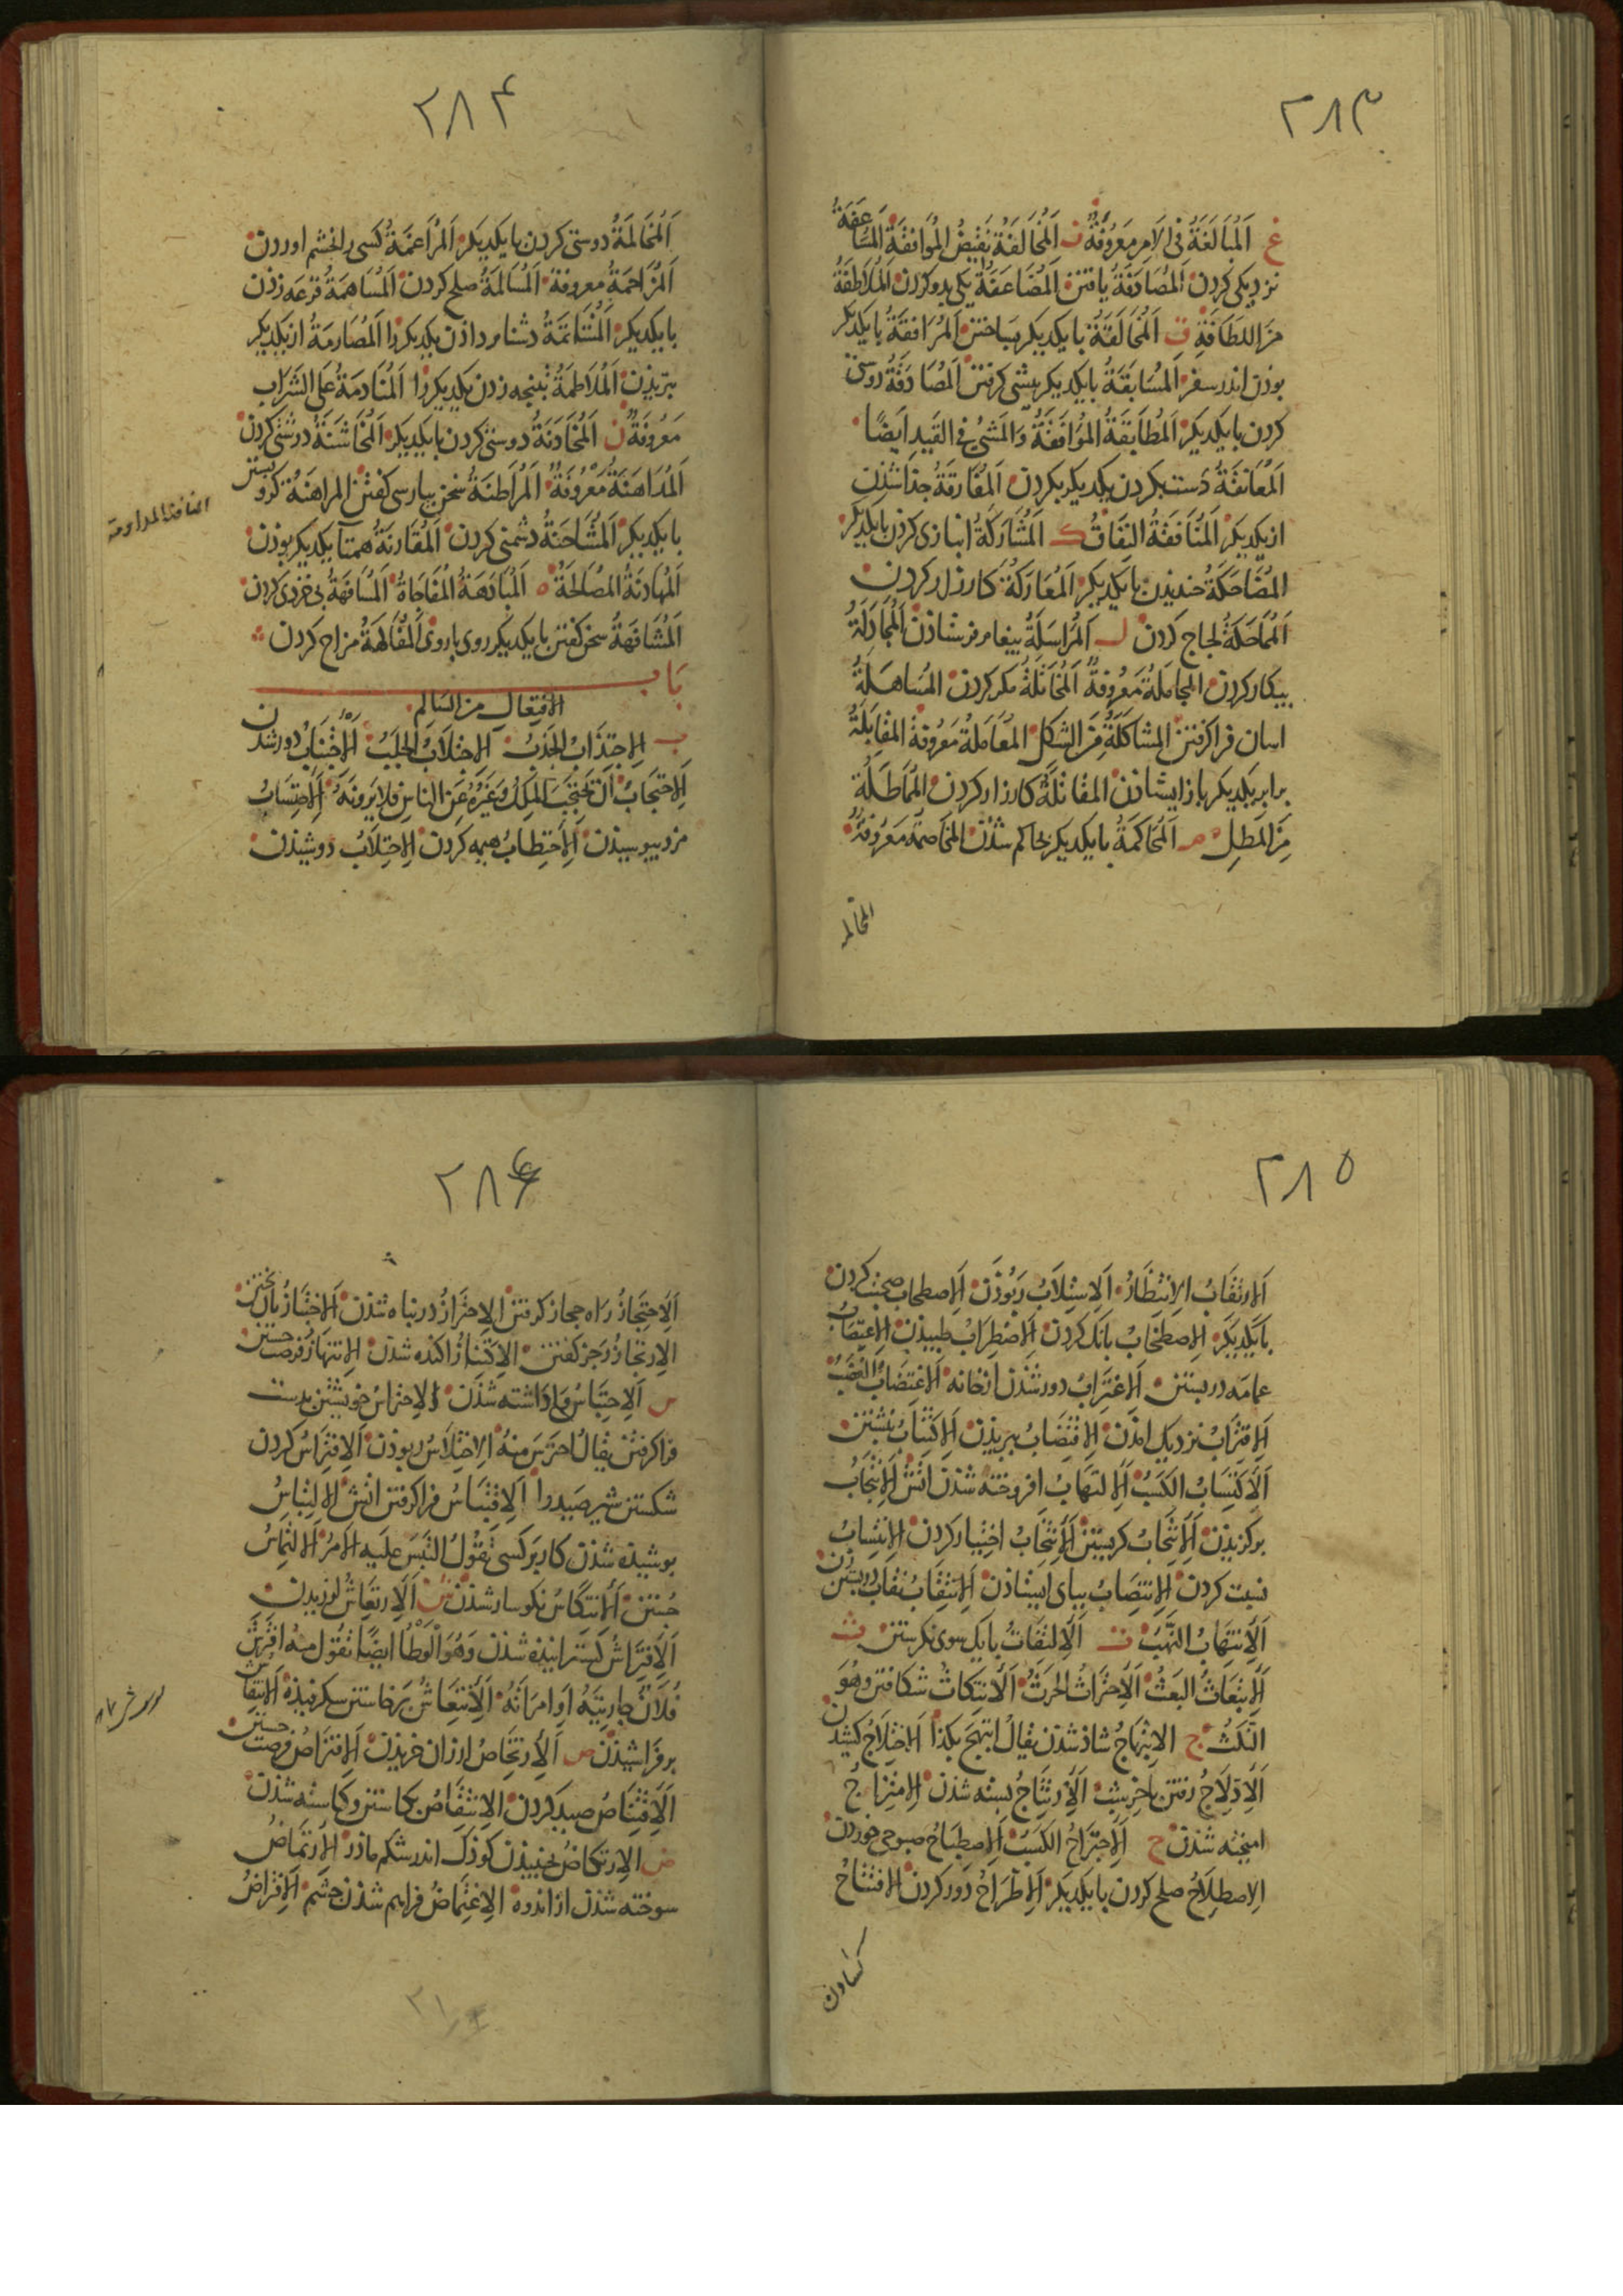 ۲۸۳
غ اَلْمُبَالَغَةُ فى الاَمرِ مَعرُوفَةٌ ف اَلْمُخَالَفَةُ نَقِيضُ المُوَافَقَةِ المُسَاعَفَةُ
نزديكى كردن اَلمُصَادَفَةُ يافتن اَلمُضَاعَفَةُ يكى بدو كردن اَلمُلاَطَفَةُ
مِنَ اللَطَافَةِ ق اَلْمُخَالَقَةُ بايكديكر بساختن اَلمُرَافَقَةُ بايكديكر
بوذن اندر سفر اَلمُسَابَقَةُ بايكديكر پيشى كرفتن اَلمُصَادَقَةُ دوستى
كردن بايكديكر اَلمُطَابَقَةُ المُوَافَقَةُ وَالمَشىُ فى القَيدِ اَيضًا
اَلمُعَانَقَةُ دست بكردن يكديكر بكردن اَلمُفَارَقَةُ جذا شذن
از يكديكر اَلمُنَافَقَةُ النِفَاقُ ك اَلمُشَارَكَةُ انبازى كردن بايكديكر
المُضَاحَكَةُ خنديذن بايكديكر اَلمُعَارَكَةُ كارزار كردن
اَلمُمَاحَكَةُ لجاج كردن ل اَلمُرَاسَلَةُ پيغام فرستاذن اَلمُجَادَلَةُ
پيكار كردن المجَامَلَةُ مَعرُوفَةٌ اَلمُخَاتَلَةُ مكر كردن المُسَاهَلَةُ
اسان فرا كرفتن المشَاكَلَةُ مِنَ الشَكلِ المُعَامَلَةُ مَعرُوفَةٌ المُقَابَلَةُ
برابر يكديكر باز ايستاذن المقَاتَلَةُ كارزار كردن المُمَاطَلَةُ
مِنَ المَطلِ م اَلمُحَاكَمَةُ بايكديكر بحاكم شذن المخَاصَمَةُ مَعرُوفَةٌ
المخالمه
۲۸۴
اَلمُخَالَمَةُ دوستى كردن بايكديكر اَلمُرَاغَمَةُ كسى را بخشم اوردن
اَلمُزَاحَمَةُ معروفة اَلمُسَالَمَةُ صلح كردن اَلمُسَاهَمَةُ قرعه زذن
بايكديكر اَلمُشَاتَمَةُ دشنام داذن يكديكر را اَلمُصَارَمَةُ از يكديكر
ببريذن اَلمُلاَطَمَةُ تپنجه زدن يكديكر را اَلمُنَادَمَةُ عَلى الشَرَابِ
مَعرُوفَةٌ ن اَلمُخَادَنَةُ دوستى كردن بايكديكر اَلمُخَاشَنَةُ درشتى كردن
اَلمُدَاهَنَةُ مَعرُوفَةٌ اَلمُرَاطَنَةُ سخن بپارسى كفتن المراهنَةُ كرو بستن
بايكديكر اَلمُشَاحَنَةُ دشمنى كردن اَلمُقَارَنَةُ همتا يكديكر بوذن
اَلمُهَادَنَةُ المُصَالَحَةُ ه اَلمُبَادَهَةُ المُفَاجَاةُ اَلمُسَافَهَةُ بى خردى كردن
اَلمُشَافَهَةُ سخن كفتن بايكديكر روى باروى المُفَاكَهَةُ مزاح كردن
بَاب
الاِفتِعَالِ مِنَ السَالِمِ
ب اَلاِجتِذَابُ الجَذبُ اَلاِجتِلاَبُ الجَلبُ اَلاِجتِنَابُ دور شدن
اَلاِحتِجَابُ اَن يَحتَجِبَ المَلِكُ وَغَيرُهُ عَنِ النَاسِ فَلاَ يَرَونَهُ اَلاِحتِسَابُ
مزد بيوسيذن اَلاِحتِطَابُ هيمه كردن اَلاِحتِلاَبُ دوشيذن
۲۸۵
اَلارتِقَابُ الاِنتِظَارُ اَلاِستِلاَبُ رَبُوذَن اَلاِصطِحَاب صحبت كردن
بايكديكر اَلاِصطِخَابُ بانك كردن اَلاِضطِرَابُ طپيذن اَلاِعتِصَابُ
عمامه دربستن اَلاِغتِرَابُ دور شذن از خانه اَلاِغتِصَابُ الغَصبُ
اَلاِقتِرَابُ نزديك امذن اَلاِقتِضَابُ ببريذن اَلاِكتِتَابُ نبشتن
اَلاِكتِسَابُ الكَسبُ اَلاِلتِهَابُ افروخته شذن اتش اَلاِنتِجَابُ
بركزيذن اَلاِنتِحَابُ كريستن اَلاِنتِخَابُ اختيار كردن اَلاِنتِسَابُ
نسبت كردن اَلاِنتِصَابُ بپاى ايستاذن اَلاِنتِقَابُ نقاب دربستن
اَلاِنتِهَابُ النَهبُ ت اَلاِلتِفَاتُ بايك سوى نكريستن ث
اَلاِنبِعَاثُ البَعثُ اَلاِحتِرَاثُ الحَرثُ اَلاِنتِكَاثُ شكافتن وهُوَ
النَكثُ ج الاِبتِهَاجُ شاذ شذن يقَالُ اِبتَهَجَ بِكَذَا اَلاِختِلاَجُ كشيدن
اَلاِدِّلاَجُ رفتن باخر شب اَلاِرتِتَاجُ بسته شذن اَلاِمتِزَاجُ
اميخته شذن ح اَلاِجتِرَاحُ الكَسبُ اَلاِصطِبَاحُ صبوحى خوردن
اَلاِصطِلاَحُ صلح كردن بايكديكر اَلاِطِّرَاحُ دور كردن الافتتَاحُ
كشادن
۲۸۶
اَلاِحتِجَازُ راه حجاز كرفتن الاِحتِرَازُ در پناه شذن اَلاِختِبَازُ نان پختن
الاِرتِجَازُ رَجَز كفتن الاِكتِنَازُ اكنده شذن اَلاِنتِهَازُ فرصت جستن
س اَلاِحتِبَاسُ واداشته شذن اَلاِحتِرَاسُ خويشتن بدست
فرا كرفتن يقَالُ احتَرَسَ مِنهُ اَلاِختِلاَسُ ربوذن اَلاِفتِرَاسُ كردن
شكستن شير صيدرا اَلاِقتِبَاسُ فرا كرفتن اتش اَلاِلتِبَاسُ
پوشيذه شذن كار بَركسى تَقُولُ التَبَسَ عَلَيهِ الاَمرُ اَلاِلتِمَاسُ
جُستن اَلاِنتِكَاسُ نكوسار شذن ش اَلاِرتِعَاشُ لرزيدن
اَلاِفتِرَاشُ كسترانيذه شذن وَهُوَ الوَطأُ ايضًا تَقُولُ مِنهُ افتَرَشَ
فُلاَنٌ جَارِيَتَهُ اَو امرَاَتَهُ اَلاِنتِعَاشُ برخاستن سكرفيذه اَلاِنتِفَاشُ
برفراشيذن ص اَلاِرتِخَاصُ ارزان خريذن اَلاِفتِرَاصُ فرصت جستن
اَلاِقتِنَاصُ صيد كردن اَلاِنتِقَاصُ بكاستن وكاسته شذن
ض الاِرتِكَاضُ جنبيذن كوذك اندر شكم ماذر اَلاِرتِمَاضُ
سوخته شذن از اندوه الاِغتِمَاضُ فراهم شذن چشم اَلاِقتِرَاضُ